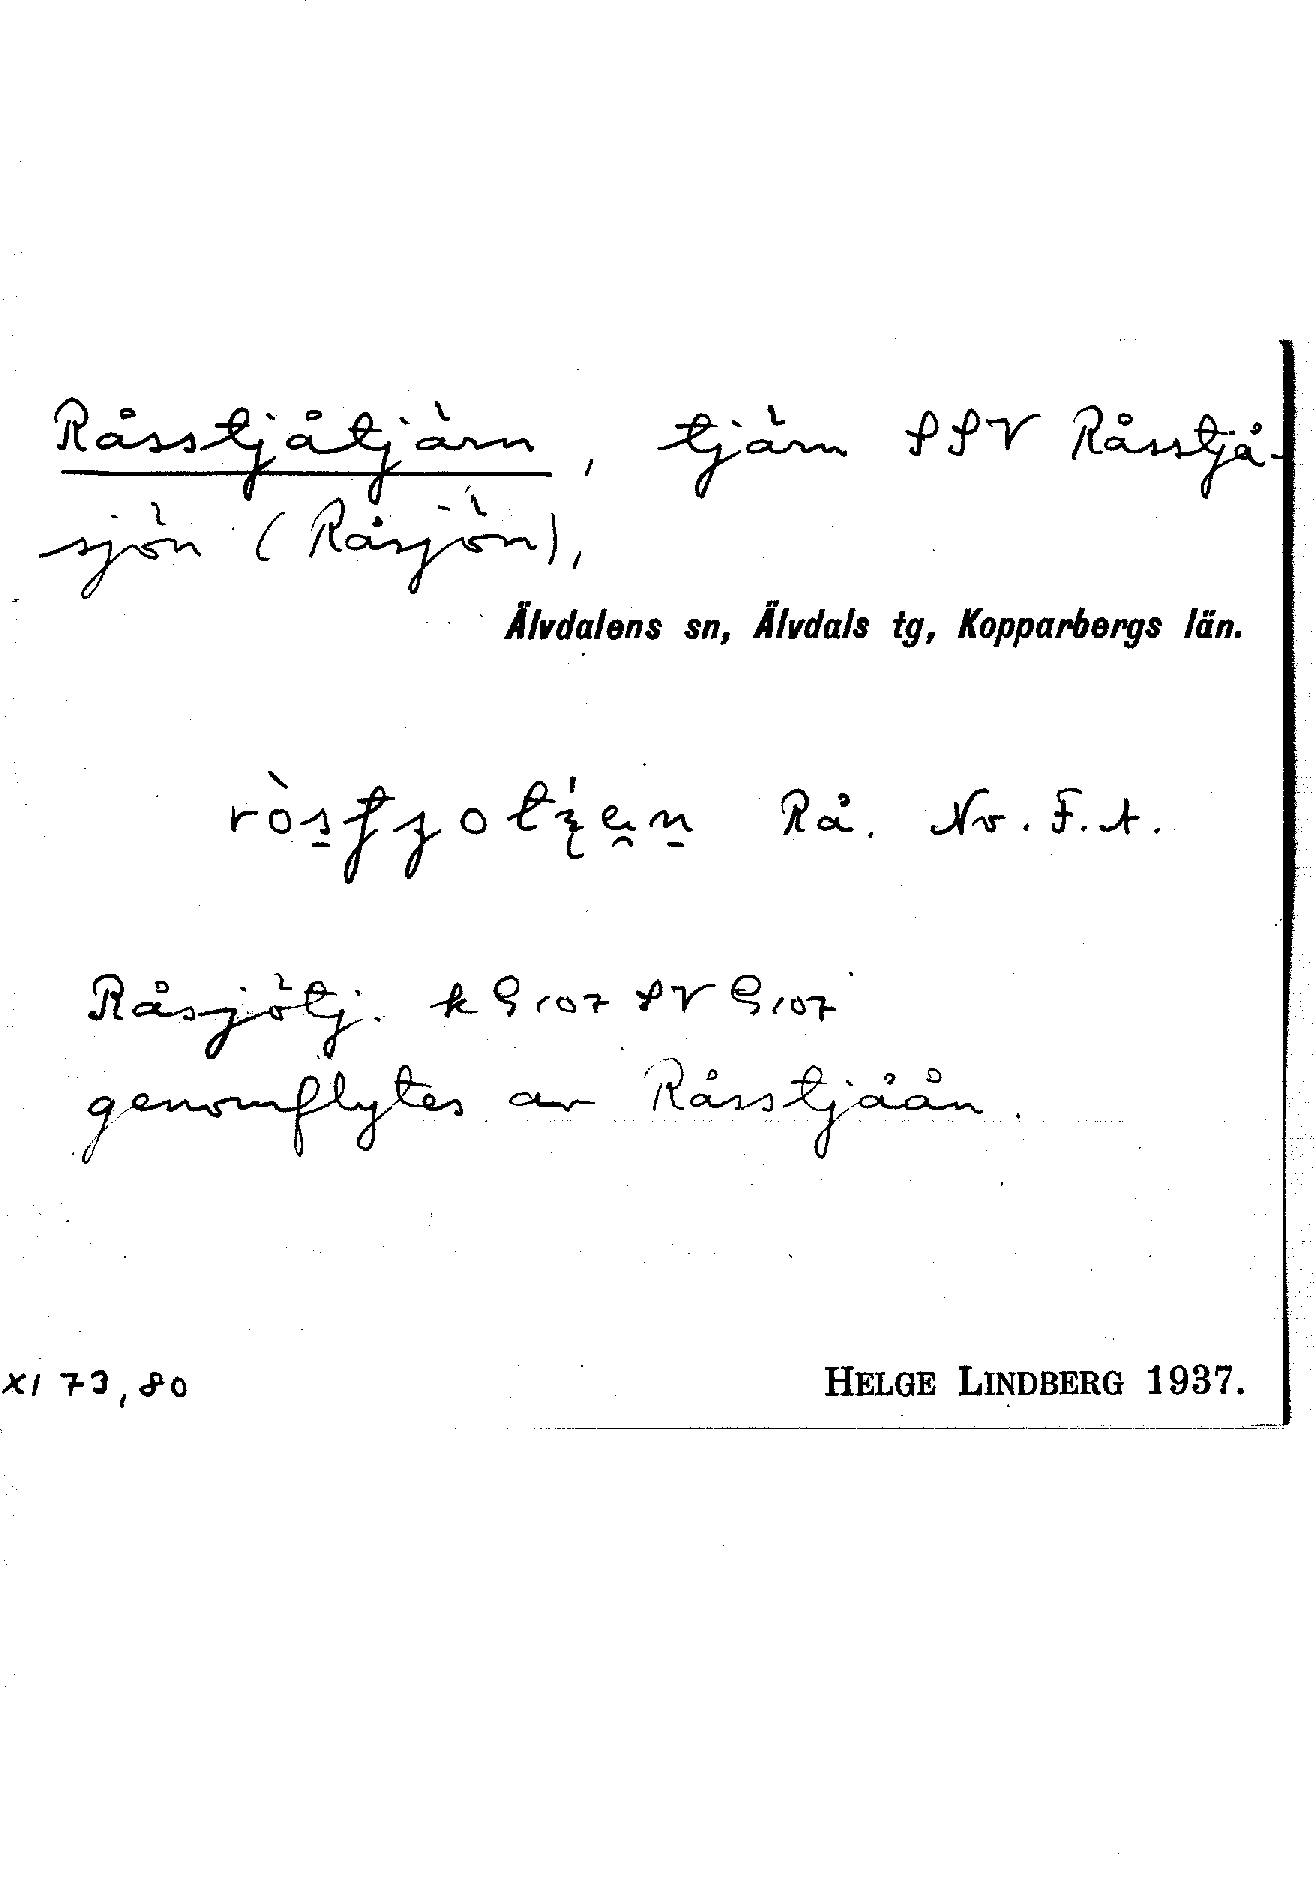 Råsstjåtjärn, tjärn SSV Råsstjå-
sjön (Råsjön),
Älvdalens sn, Älvdals tg, Kopparbergs län.
Rå. No. F. A.
Råsjötj. k G 107 SV G 107
genomflytes av Råsstjåån.
XI 73, 80
HELGE LINDBERG 1937.